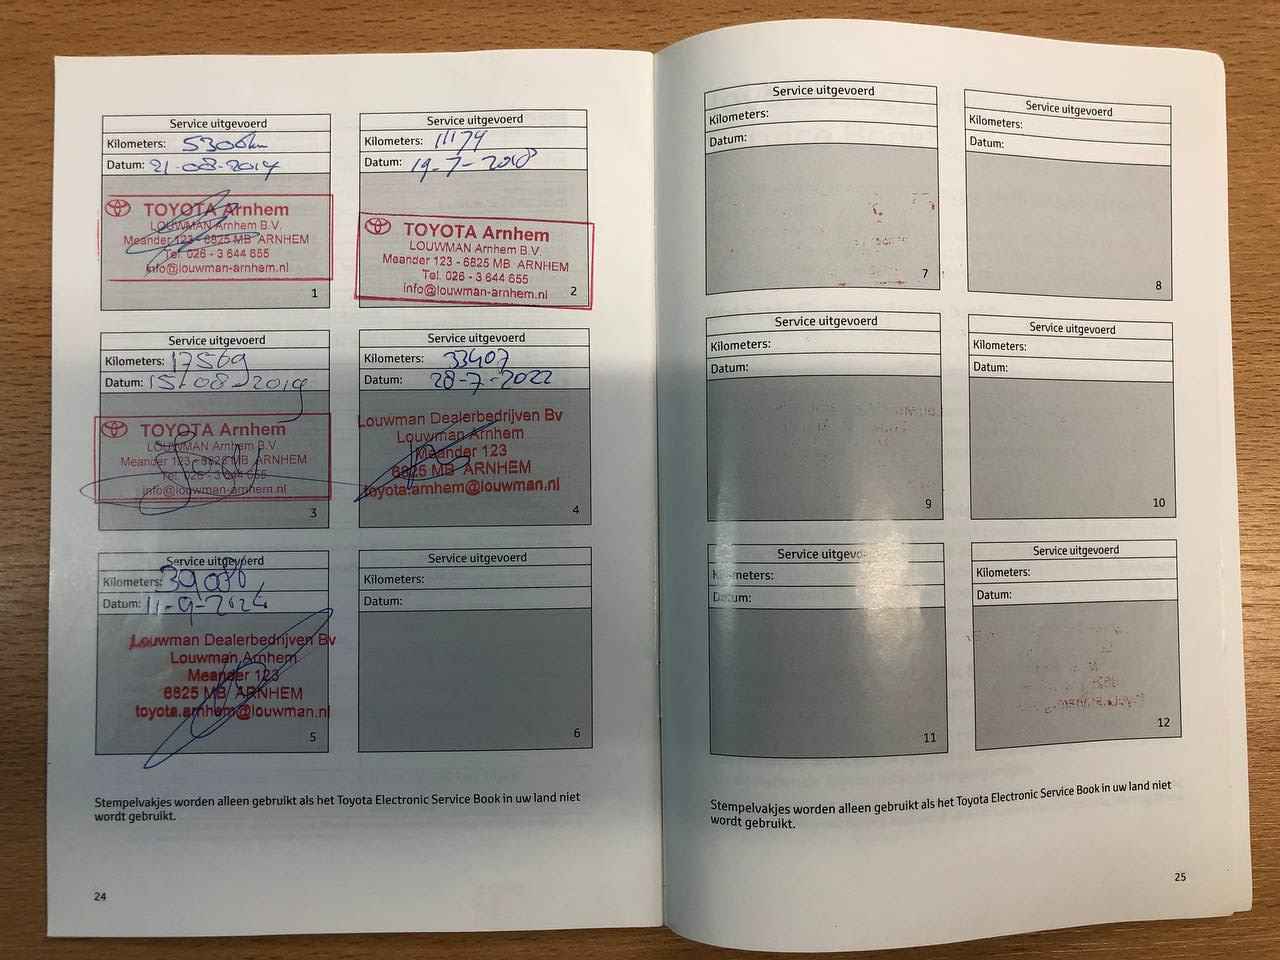 Service uitgevoerd
Kilometers: 5306km
Datum: 21-08-2017
TOYOTA Arnhem
LOUWMAN Arnhem B.V.
Meander 123 - 6825 MB ARNHEM
Tel. 026 - 3 644 655
info@louwman-arnhem.nl
1
Service uitgevoerd
Kilometers: 11174
Datum: 19-7-2018
TOYOTA Arnhem
LOUWMAN Arnhem B.V.
Meander 123 - 6825 MB ARNHEM
Tel. 026 - 3 644 655
info@louwman-arnhem.nl
2
Service uitgevoerd
Kilometers: 17569
Datum: 15-08-2019
TOYOTA Arnhem
LOUWMAN Arnhem B.V.
Meander 123 - 6825 MB ARNHEM
Tel. 026 - 3 644 655
info@louwman-arnhem.nl
3
Service uitgevoerd
Kilometers: 33407
Datum: 28-7-2022
Louwman Dealerbedrijven Bv
Louwman Arnhem
Meander 123
6825 MB ARNHEM
toyota.arnhem@louwman.nl
4
Service uitgevoerd
Kilometers: 39086
Datum: 11-9-2024
Louwman Dealerbedrijven Bv
Louwman Arnhem
Meander 123
6825 MB ARNHEM
toyota.arnhem@louwman.nl
5
Service uitgevoerd
Kilometers:
Datum:
6
Stempelvakjes worden alleen gebruikt als het Toyota Electronic Service Book in uw land niet
wordt gebruikt.
24
Service uitgevoerd
Kilometers:
Datum:
7
Kilometers:
Service uitgevoerd
Datum:
8
Service uitgevoerd
Kilometers:
Datum:
9
Service uitgevoerd
Kilometers:
Datum:
10
Service uitgevoerd
Kilometers:
Datum:
11
Service uitgevoerd
Kilometers:
Datum:
12
Stempelvakjes worden alleen gebruikt als het Toyota Electronic Service Book in uw land niet
wordt gebruikt.
25